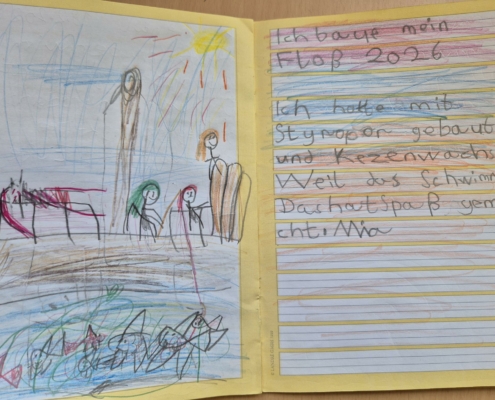 Ich baue mein
Floß 2026
Ich hatte mit
Styropor gebaut
und Kezenwachs
Weil das Schwimm
Das hat Spaß gem
cht. Mia